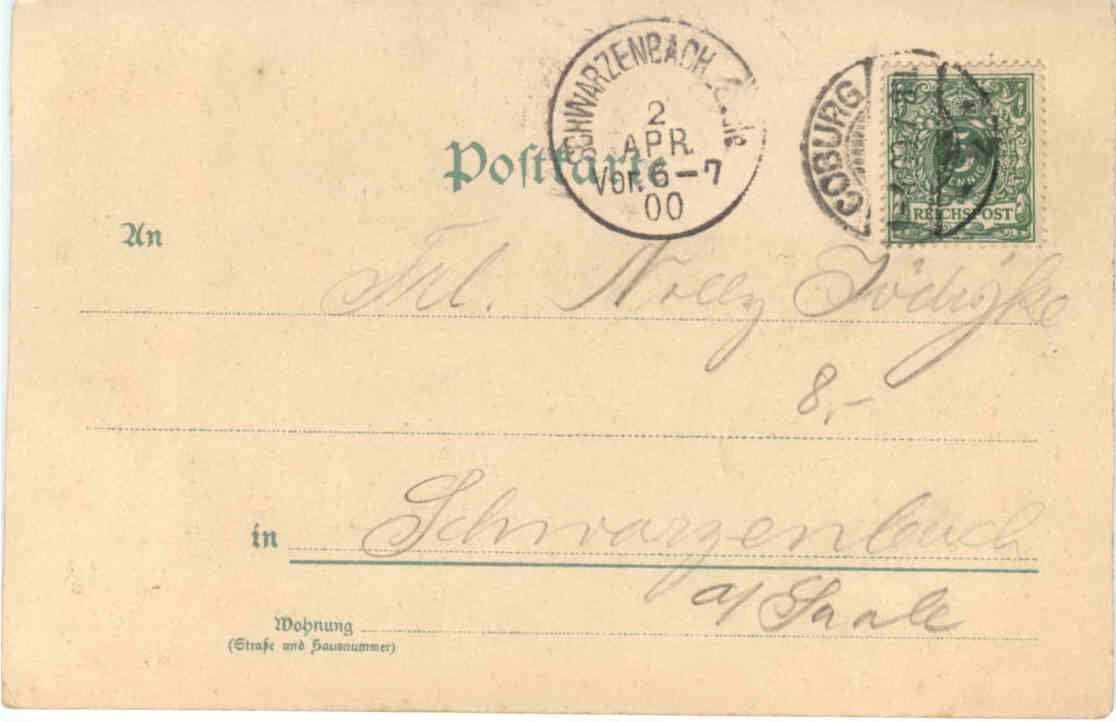 SCHWARZENBACH
2
APR.
Vor. 6-7
00
COBURG
5
REICHSPOST
Postkarte
An
Frl. Nelly
8.-
in Schwarzenbach
a/ Saale
Wohnung
(Straße und Hausnummer)